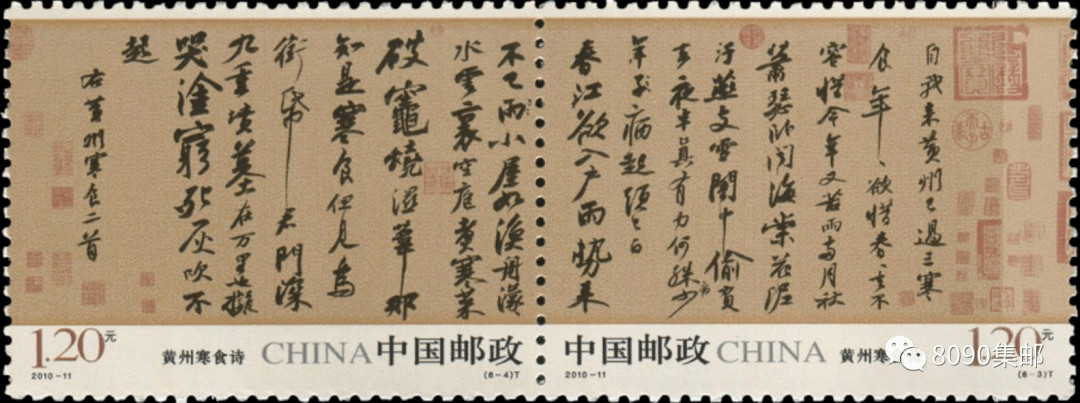 自我来黄州已過三寒
食年〻欲惜春〻去不
容惜今年又苦雨兩月秋
蕭瑟卧聞海棠花泥
汙燕支雪闇中偷負
去夜半真有力何殊少
年子病起頭已白
春江欲入户雨勢来
不已雨小屋如漁舟濛〻
水雲裏空庖煮寒菜
破竈燒濕葦那
知是寒食但見烏
銜帋君門深
九重墳墓在万里也擬
哭塗窮死灰吹不
起
右黄州寒食二首
1.20元 黄州寒食诗 CHINA 中国邮政
2010-11 (6-4)T
中国邮政 CHINA 黄州寒 1.20元
2010-11 (6-3)T
8090集邮